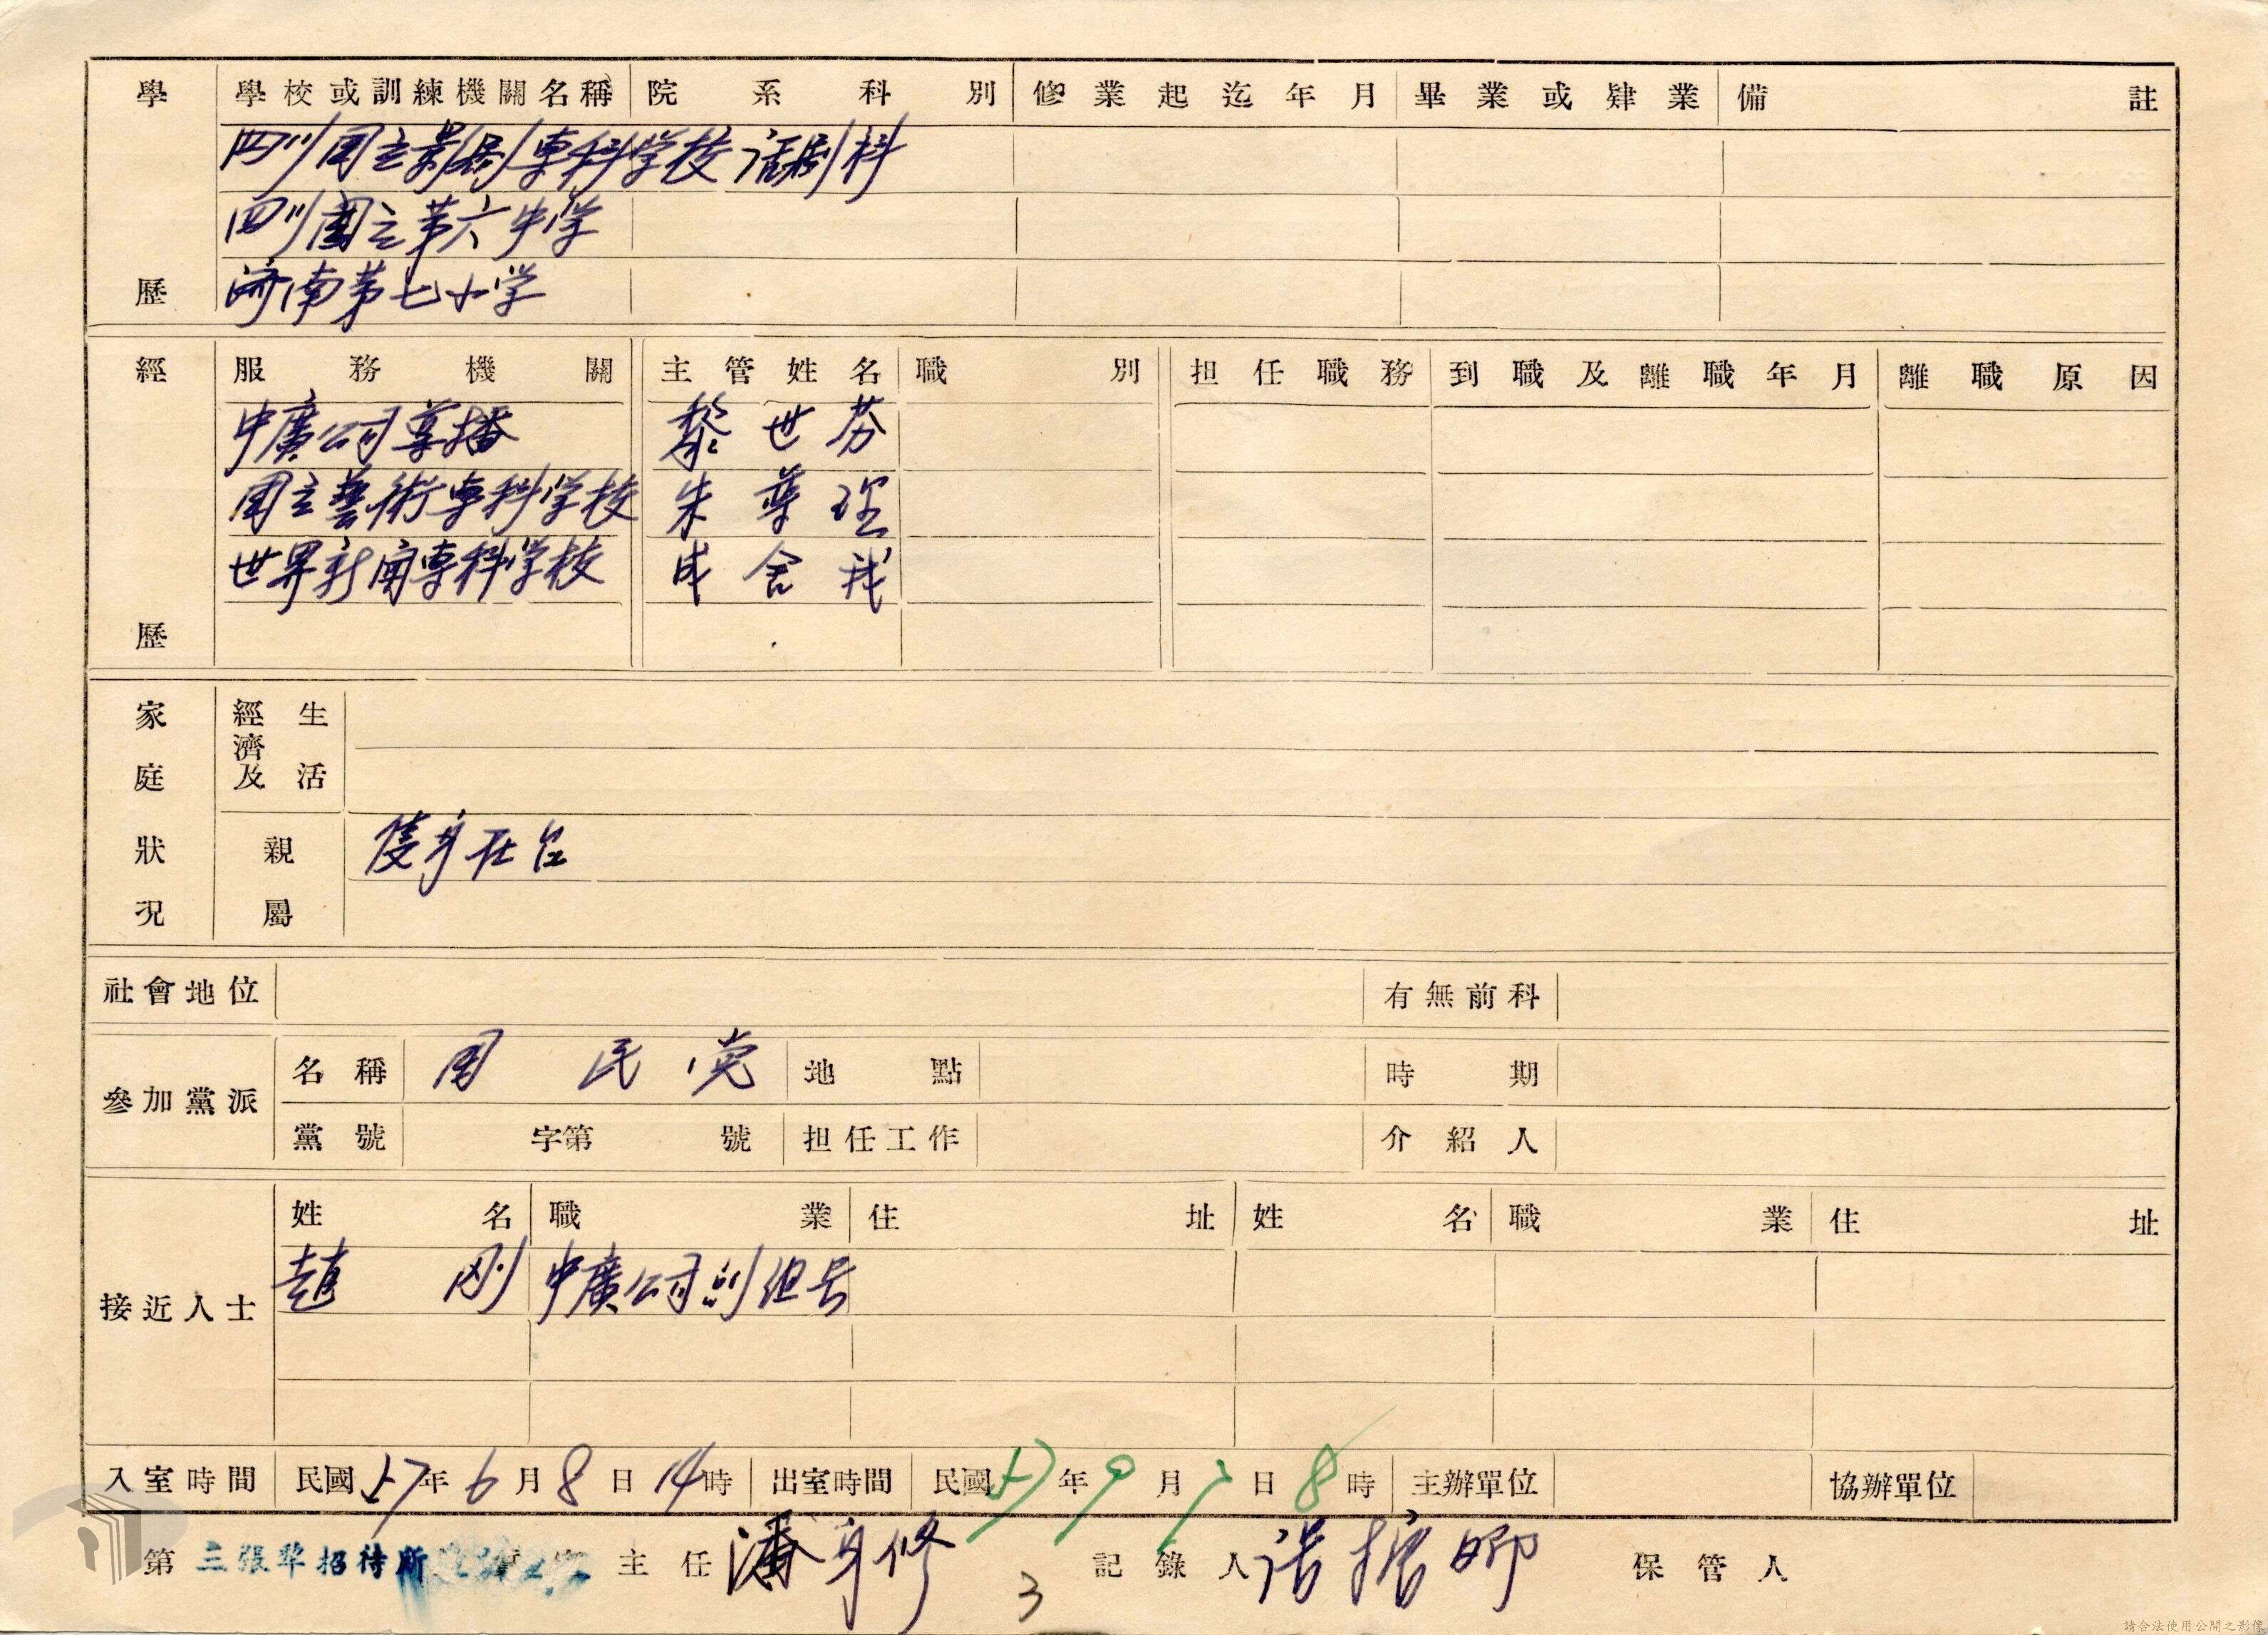 學歷 學校或訓練機關名稱 院系科別 修業起迄年月 畢業或肄業 備註
四川国立影劇專科学校 话剧科
四川國立第六中学
濟南第七小学
經歷 服務機關 主管姓名 職別 担任職務 到職及離職年月 離職原因
中廣公司導播 黎世芬
国立藝術専科学校 朱尊誼
世界新闻專科学校 成舍我
家庭狀況 經濟及生活
親屬 隻身在台
社會地位 有無前科
參加黨派 名稱 国民党 地點 時期
黨號 字第 號 担任工作 介紹人
接近人士 姓名 職業 住址 姓名 職業 住址
趙剛 中廣公司副组长
入室時間 民國57年6月8日14時 出室時間 民國57年9月7日8時 主辦單位 協辦單位
第 三張犂招待所 主任 潘身修 記錄人 保管人
3
請合法使用公開之影像